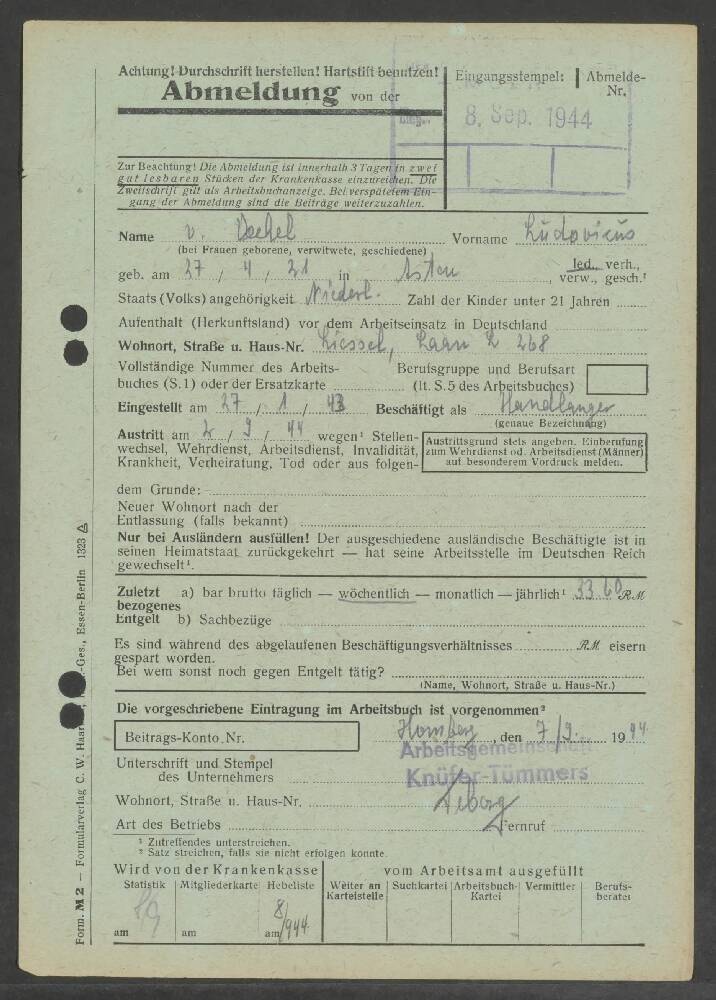 Achtung! Durchschrift herstellen! Hartstift benutzen!
Abmeldung von der
Eingangsstempel:
Abmelde-
Nr.
8. Sep. 1944
Zur Beachtung! Die Abmeldung ist innerhalb 3 Tagen in zwei
gut lesbaren Stücken der Krankenkasse einzureichen. Die
Zweitschrift gilt als Arbeitsbuchanzeige. Bei verspätetem Ein-
gang der Abmeldung sind die Beiträge weiterzuzahlen.
Name v. Vorname Ludovicus
(bei Frauen geborene, verwitwete, geschiedene)
geb. am 27 / 4 / 21 in Asten, led., verh.,
verw., gesch.¹
Staats (Volks) angehörigkeit Niederl. Zahl der Kinder unter 21 Jahren
Aufenthalt (Herkunftsland) vor dem Arbeitseinsatz in Deutschland
Wohnort, Straße u. Haus-Nr. Liessel, Laan L 268
Vollständige Nummer des Arbeits-
buches (S.1) oder der Ersatzkarte
Berufsgruppe und Berufsart
(lt. S.5 des Arbeitsbuches)
Eingestellt am 27 / 1 / 43 Beschäftigt als Handlanger
(genaue Bezeichnung)
Austritt am 2 / 9 / 44 wegen¹ Stellen-
wechsel, Wehrdienst, Arbeitsdienst, Invalidität,
Krankheit, Verheiratung, Tod oder aus folgen-
Austrittsgrund stets angeben. Einberufung
zum Wehrdienst od. Arbeitsdienst (Männer)
auf besonderem Vordruck melden.
dem Grunde:
Neuer Wohnort nach der
Entlassung (falls bekannt)
Nur bei Ausländern ausfüllen! Der ausgeschiedene ausländische Beschäftigte ist in
seinen Heimatstaat zurückgekehrt — hat seine Arbeitsstelle im Deutschen Reich
gewechselt¹.
Zuletzt a) bar brutto täglich — wöchentlich — monatlich — jährlich¹ 33.60 RM
bezogenes
Entgelt b) Sachbezüge
Es sind während des abgelaufenen Beschäftigungsverhältnisses RM eisern
gespart worden.
Bei wem sonst noch gegen Entgelt tätig?
(Name, Wohnort, Straße u. Haus-Nr.)
Die vorgeschriebene Eintragung im Arbeitsbuch ist vorgenommen²
Beitrags-Konto.Nr.
Homberg, den 7/9. 1944
Arbeitsgemeinschaft
Knüfer-Tümmers
Unterschrift und Stempel
des Unternehmers
Wohnort, Straße u. Haus-Nr.
Art des Betriebs Fernruf
¹ Zutreffendes unterstreichen.
² Satz streichen, falls sie nicht erfolgen konnte.
Wird von der Krankenkasse vom Arbeitsamt ausgefüllt
Statistik Mitgliederkarte Hebeliste Weiter an Kartelstelle Suchkartei Arbeitsbuch-Kartei Vermittler Berufs-berater
8/9 44
am am am
Form. M 2 — Formularverlag C. W. Haar -Ges., Essen-Berlin 1323